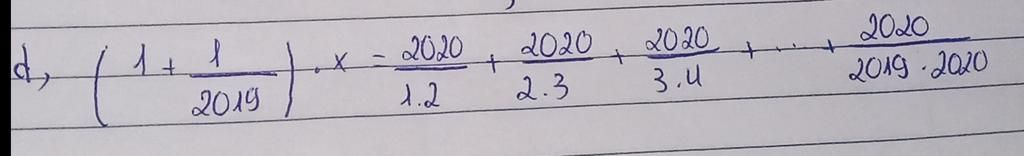 d, (1 + 1/2019) . x = 2020/1.2 + 2020/2.3 + 2020/3.4 + ... + 2020/2019.2020